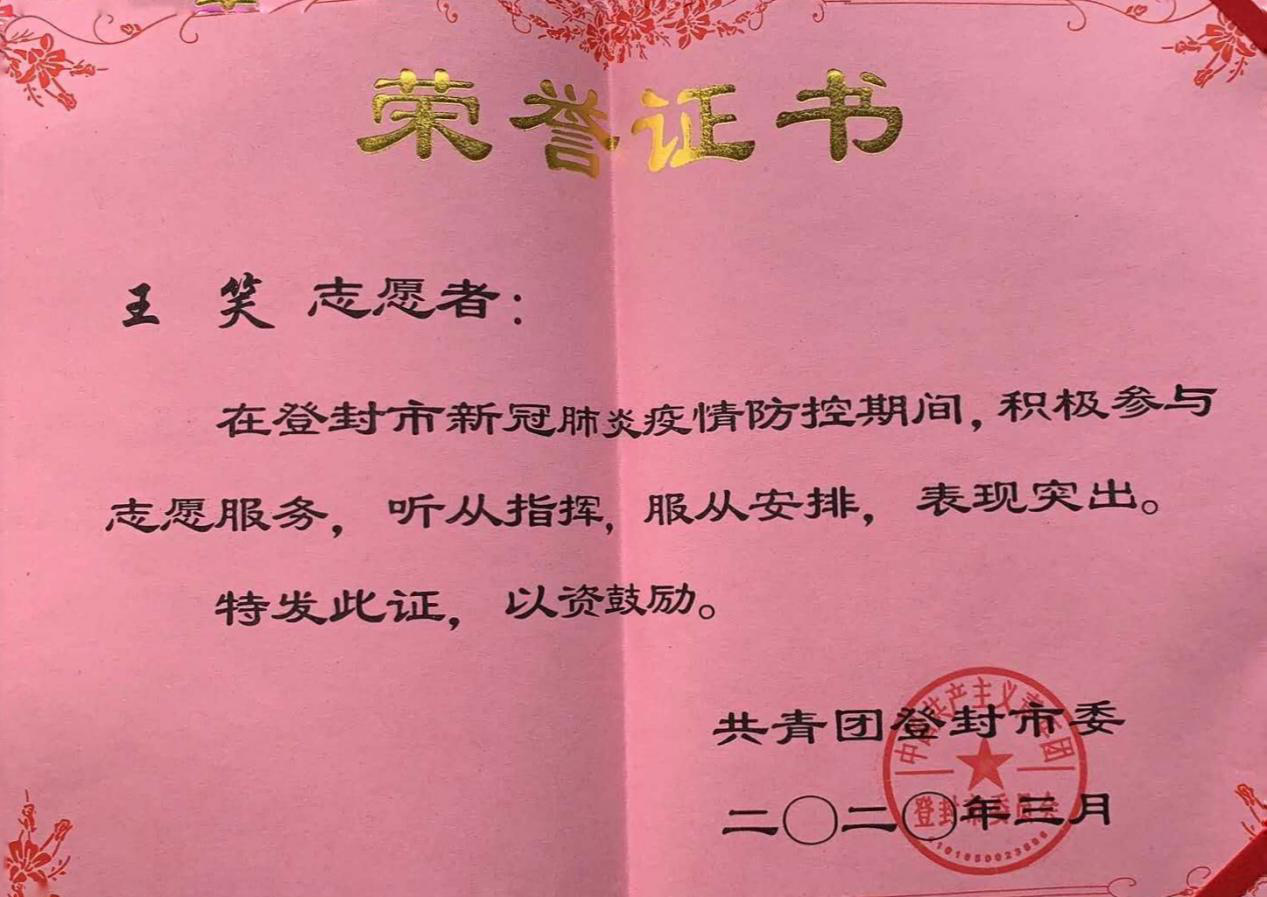 荣誉证书
王 笑 志愿者：
在登封市新冠肺炎疫情防控期间，积极参与
志愿服务，听从指挥，服从安排，表现突出。
特发此证，以资鼓励。
共青团登封市委
二〇二〇年三月
中国共产主义青年团
登封市委员会